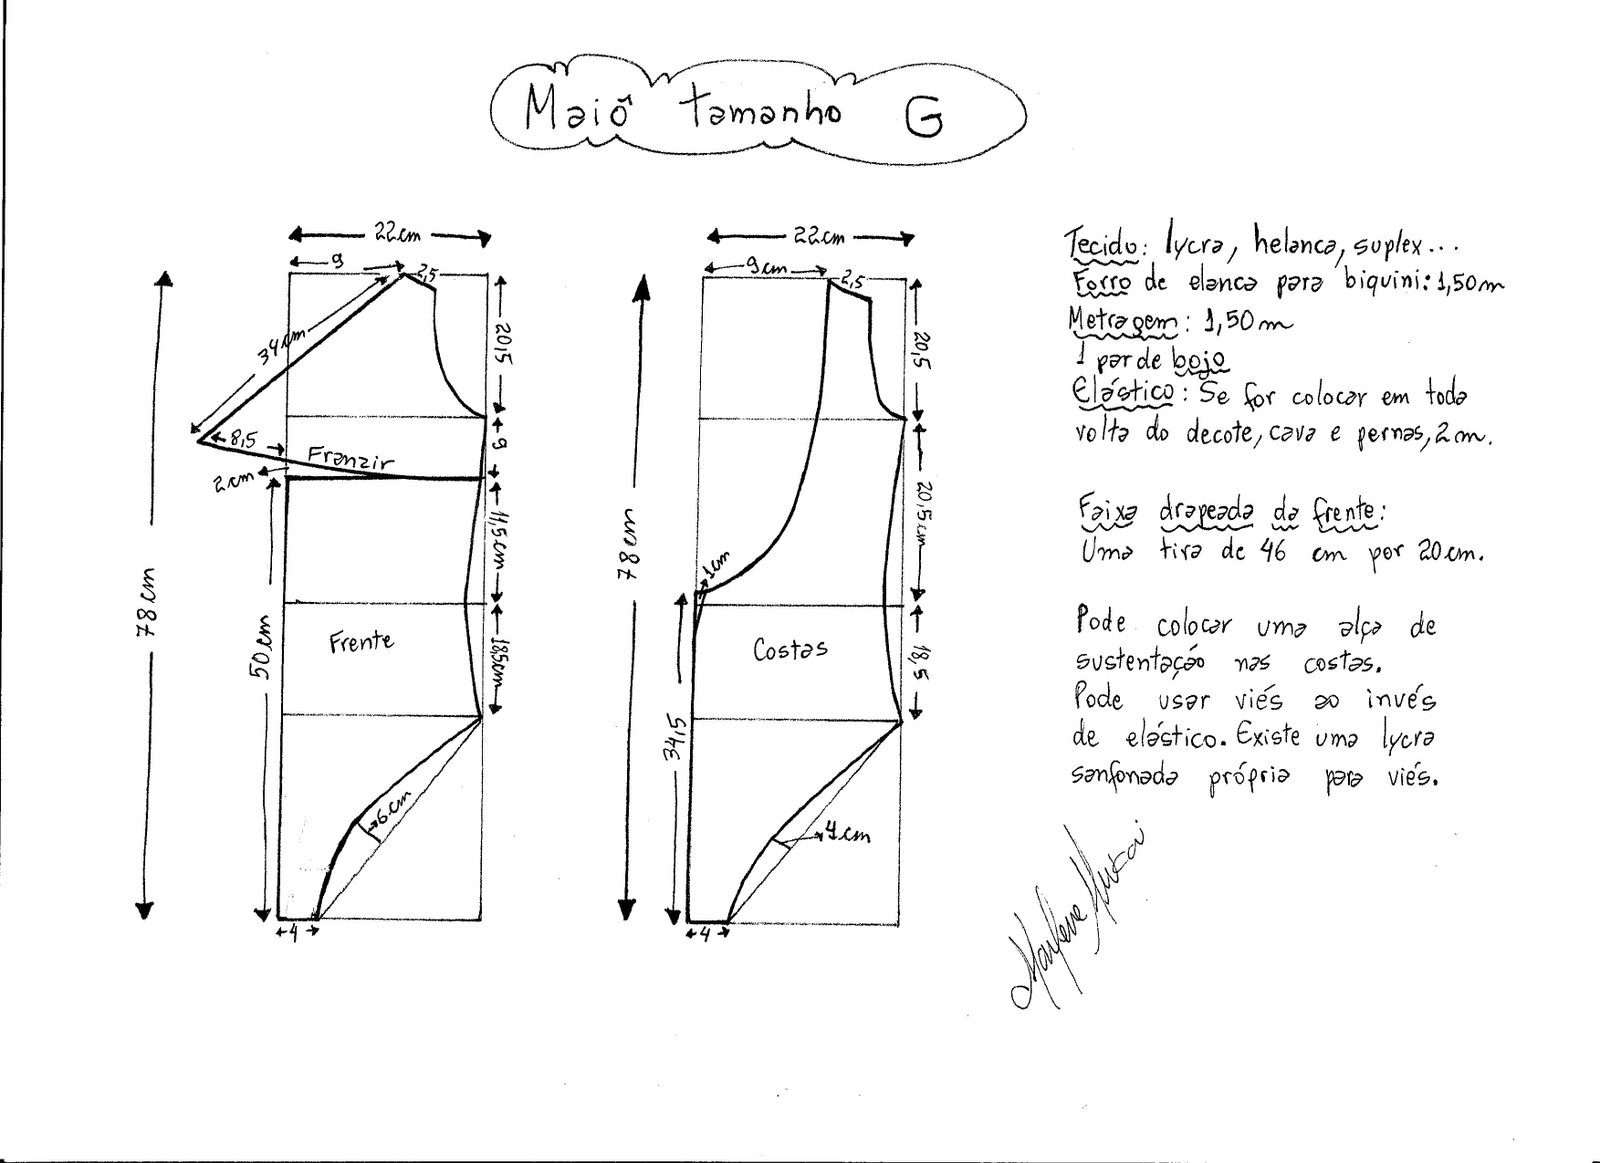 Maiô tamanho G
22cm
9
2,5
34cm
20,5
8,5
Franzir
9
2cm
11,5cm
78cm
50cm
Frente
18,5cm
6cm
4
22cm
9cm
2,5
20,5
78cm
20,5cm
1cm
Costas
18,5
34,5
4cm
4
Tecido: lycra, helanca, suplex...
Forro de elanca para biquini: 1,50m
Metragem: 1,50m
1 par de bojo
Elástico: Se for colocar em toda
volta do decote, cava e pernas, 2m.
Faixa drapeada da frente:
Uma tira de 46 cm por 20cm.
Pode colocar uma alça de
sustentação nas costas.
Pode usar viés ao invés
de elástico. Existe uma lycra
sanfonada própria para viés.
Marlene Mukai